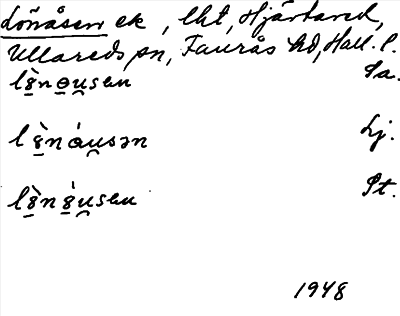 Lönåsen ek, lht, Hjärtared,
Ullareds sn, Faurås hd, Hall. l.
lè̱nɵ̱u̯sɛn Sa.
lè̱náu̯sən Lj.
lè̱nǵ̱u̯sɛn St.
1948